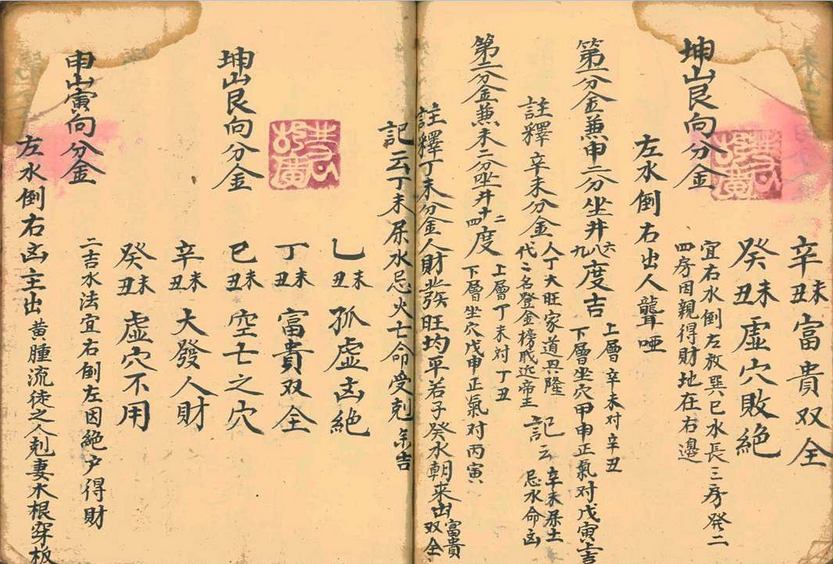 辛未辛丑富貴双全
癸未癸丑虛穴敗絕
坤山艮向分金
宜右水倒左放巽巳水長三房癸二
四房因親得財地在右邊
左水倒右出人聾啞
第一分金兼申二分坐井六八九度吉
上層辛未对辛丑
下層坐穴甲申正氣对戊寅吉
註釋辛未分金人丁大旺家道興隆
代々名登金榜戝近帝主
記云辛未尿土
忌水命凶
第二分金兼未二分坐井二十四度
上層丁未对丁丑
下層坐穴戊申正氣对丙寅
註釋丁未分金人財發旺均平若子癸水朝來出富貴双全
記云丁未尿水忌火亡命受剋余吉
坤山艮向分金
乙未丑孤虛凶絕
丁未丑富貴双全
巳未丑空亡之穴
辛未丑大發人財
癸未丑虛穴不用
二吉水法宜右倒左因絕户得財
申山寅向分金
左水倒右凶主出黃腫流徒之人剋妻木根穿板